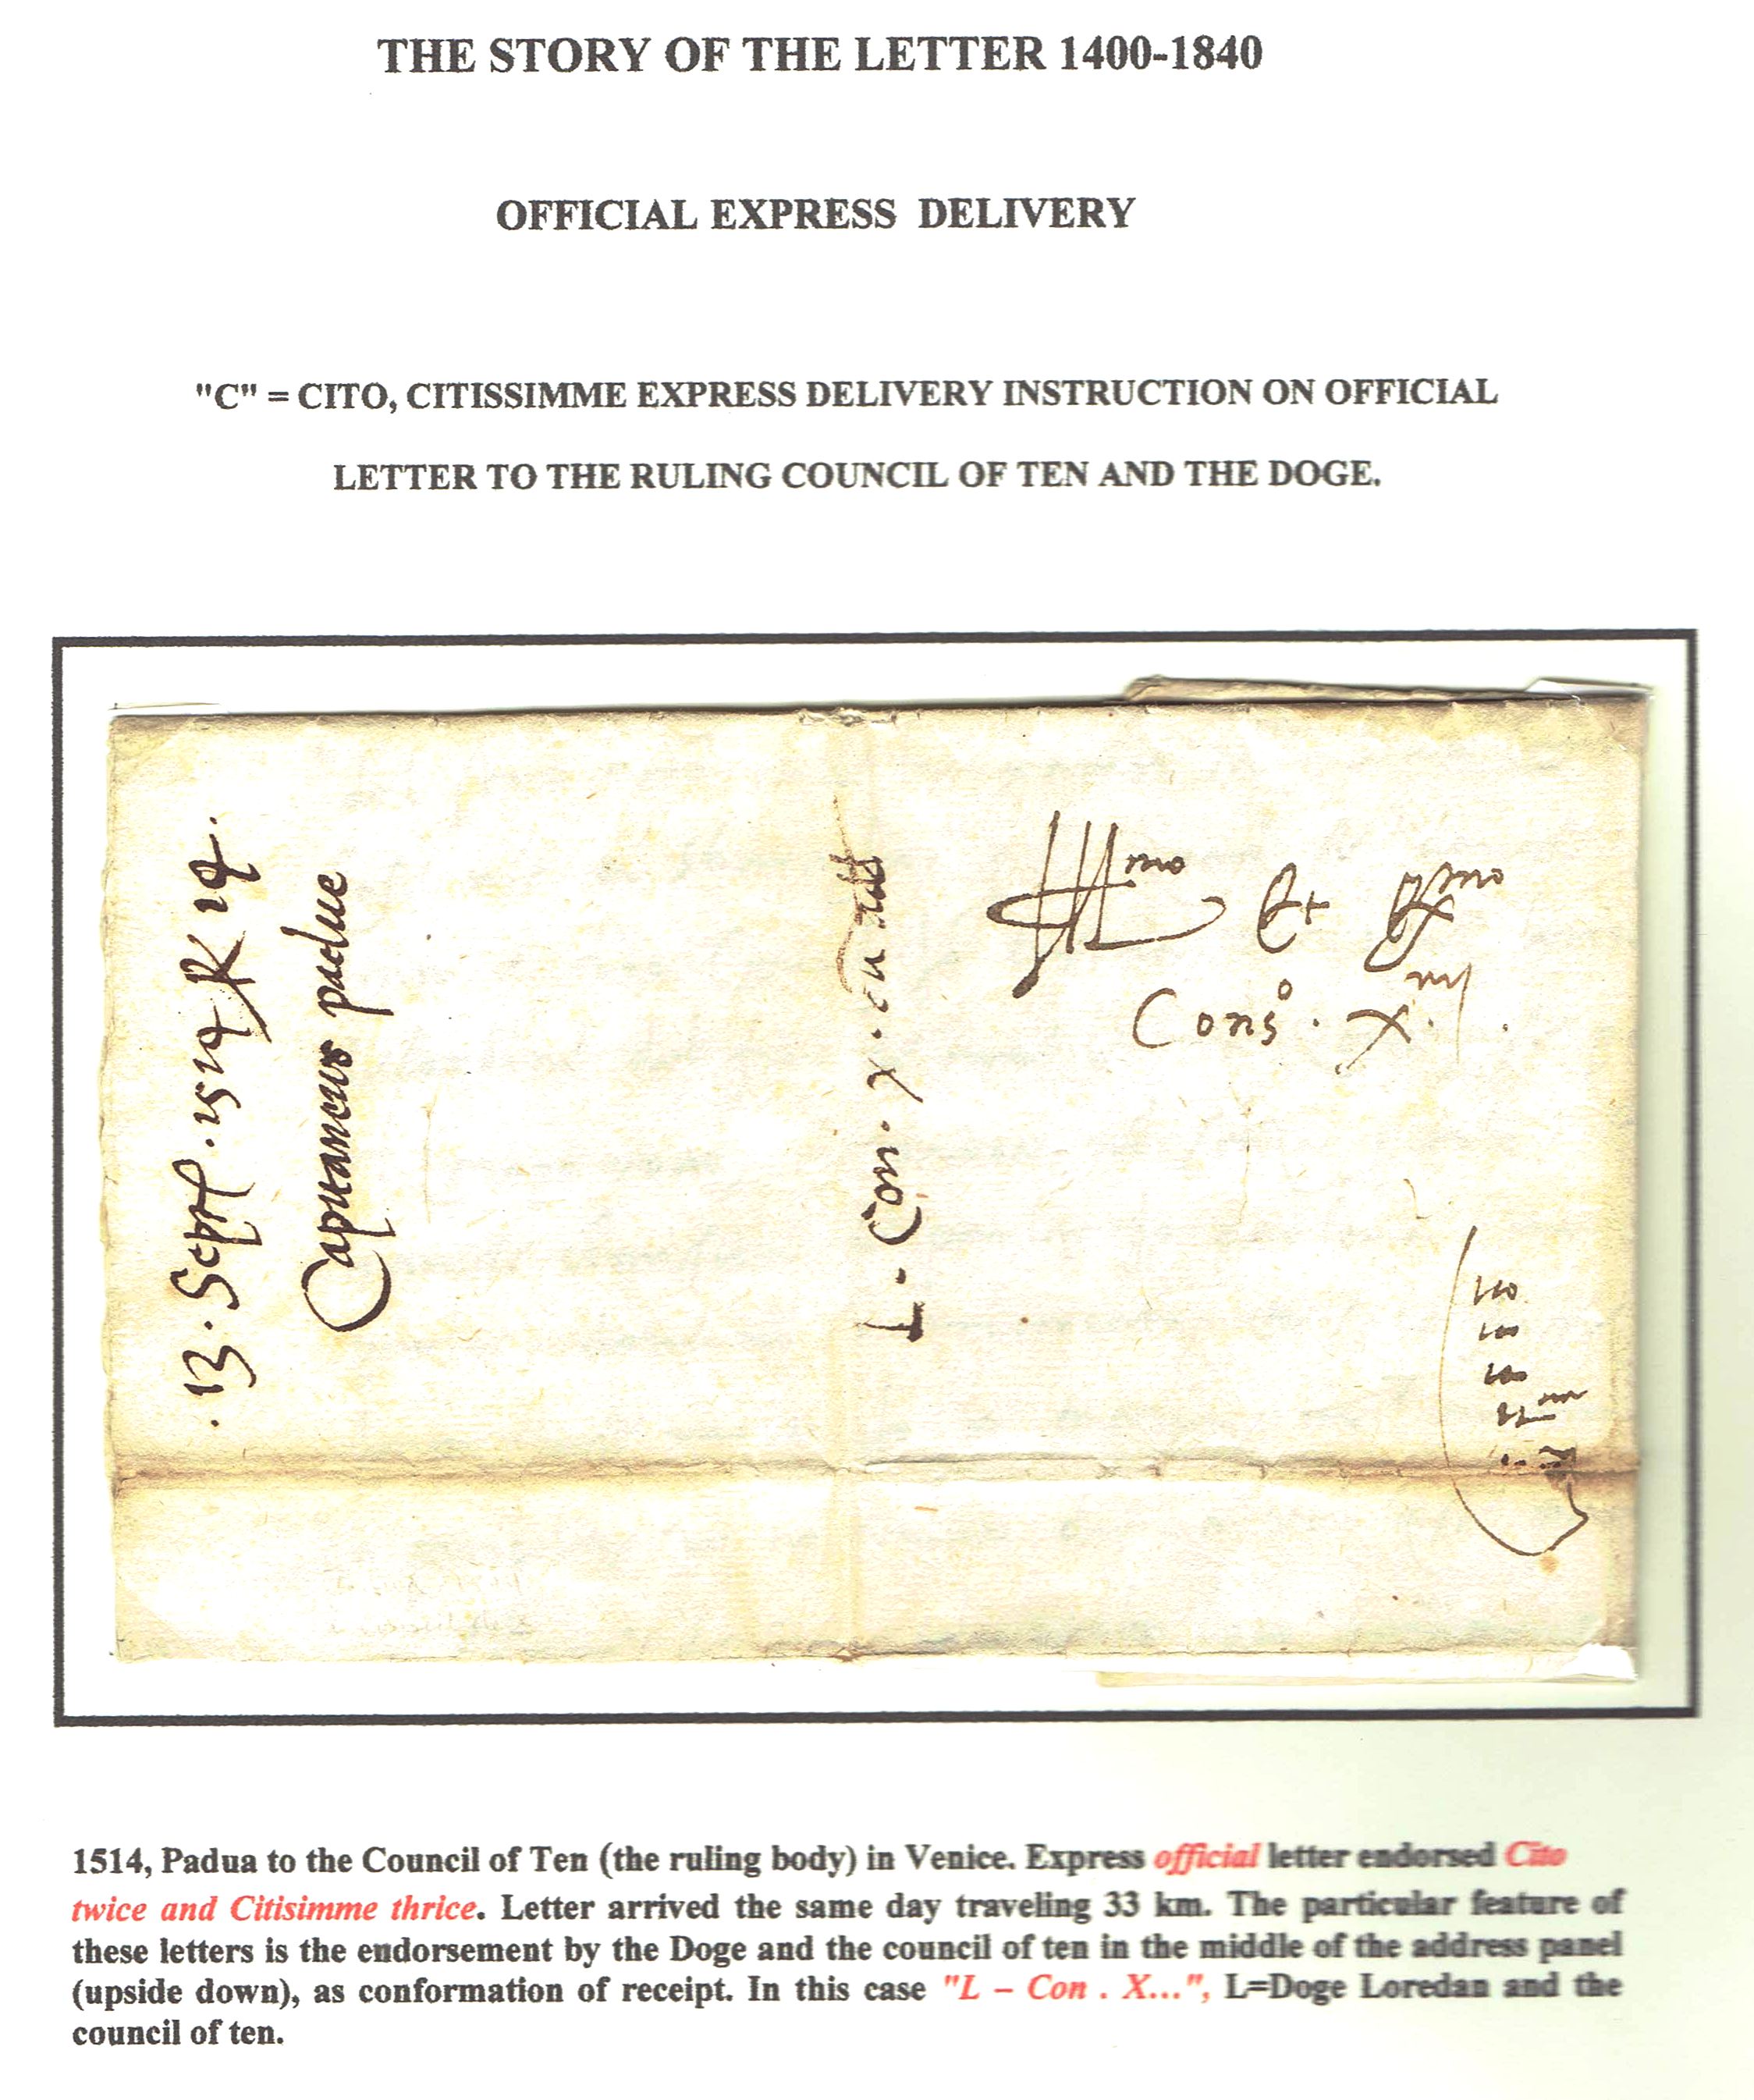 THE STORY OF THE LETTER 1400-1840
OFFICIAL EXPRESS DELIVERY
"C" = CITO, CITISSIMME EXPRESS DELIVERY INSTRUCTION ON OFFICIAL
LETTER TO THE RULING COUNCIL OF TEN AND THE DOGE.
.13. Sept. 1514 R 14.
Capitaneus padue
L. Con. X.
Illmo Et Exmo
Conso. X.
1514, Padua to the Council of Ten (the ruling body) in Venice. Express official letter endorsed Cito
twice and Citisimme thrice. Letter arrived the same day traveling 33 km. The particular feature of
these letters is the endorsement by the Doge and the council of ten in the middle of the address panel
(upside down), as conformation of receipt. In this case "L – Con . X...", L=Doge Loredan and the
council of ten.